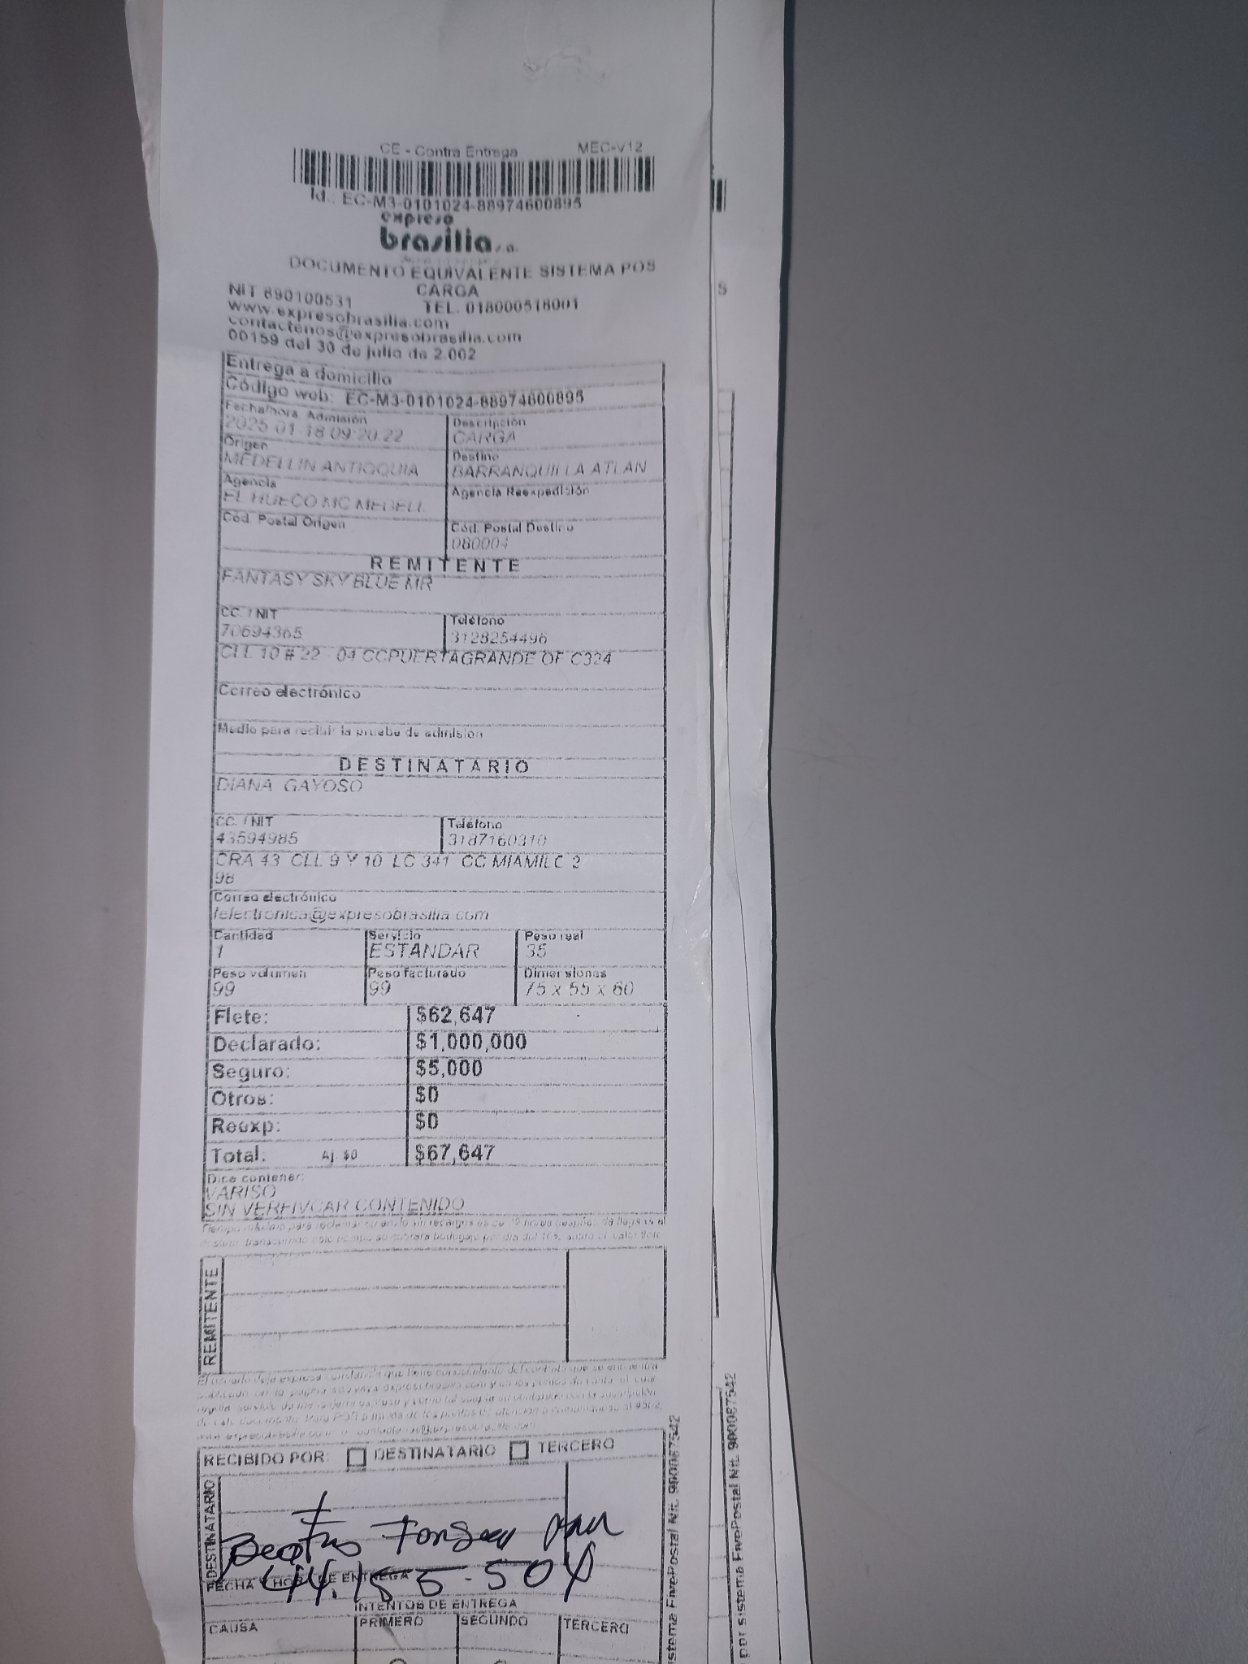 CE - Contra Entrega MEC-V12
Id.: EC-M3-0101024-88974600895
expreso
brasilia s.a.
DOCUMENTO EQUIVALENTE SISTEMA POS
CARGA
NIT 890100531 TEL. 018000518001
www.expresobrasilia.com
contactenos@expresobrasilia.com
00159 del 30 de julio de 2.002
Entrega a domicilio
Código web: EC-M3-0101024-88974600895
Fecha/hora Admisión Descripción
2025-01-18 09:20:22 CARGA
Origen Destino
MEDELLIN ANTIOQUIA BARRANQUILLA ATLAN
Agencia Agencia Reexpedición
EL HUECO MC MEDELL
Cód. Postal Origen Cód. Postal Destino
080004
REMITENTE
FANTASY SKY BLUE MR
CC. / NIT Teléfono
70694365 3128254496
CLL 10 # 22 - 04 CCPUERTAGRANDE OF C324
Correo electrónico
Medio para recibir la prueba de admisión
DESTINATARIO
DIANA GAYOSO
CC. / NIT Teléfono
43594985 3187160310
CRA 43 CLL 9 Y 10 LC 341 CC MIAMI LC 2
98
Correo electrónico
felectronica@expresobrasilia.com
Cantidad Servicio Peso real
1 ESTANDAR 35
Peso volumen Peso facturado Dimensiones
99 99 75 x 55 x 60
Flete: $62,647
Declarado: $1,000,000
Seguro: $5,000
Otros: $0
Reexp: $0
Total: Aj. $0 $67,647
Dice contener:
VARISO
SIN VERFIVCAR CONTENIDO
REMITENTE
RECIBIDO POR: DESTINATARIO TERCERO
DESTINATARIO
44.155.504
FECHA Y HORA DE ENTREGA
INTENTOS DE ENTREGA
CAUSA PRIMERO SEGUNDO TERCERO
stema FivePostal Nit. 900087542
por sistema FivePostal Nit. 900087542